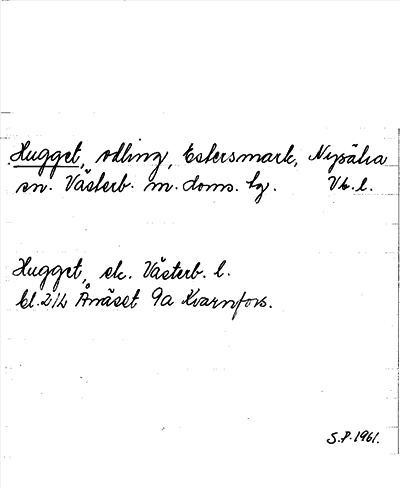 Hugget, odling, Estersmark, Nysätra
sn. Västerb. m. doms. tg. Vb. l.
Hugget, ek. Västerb. l.
bl. 214 Ånäset 9a Kvarnfors.
S.P. 1961.